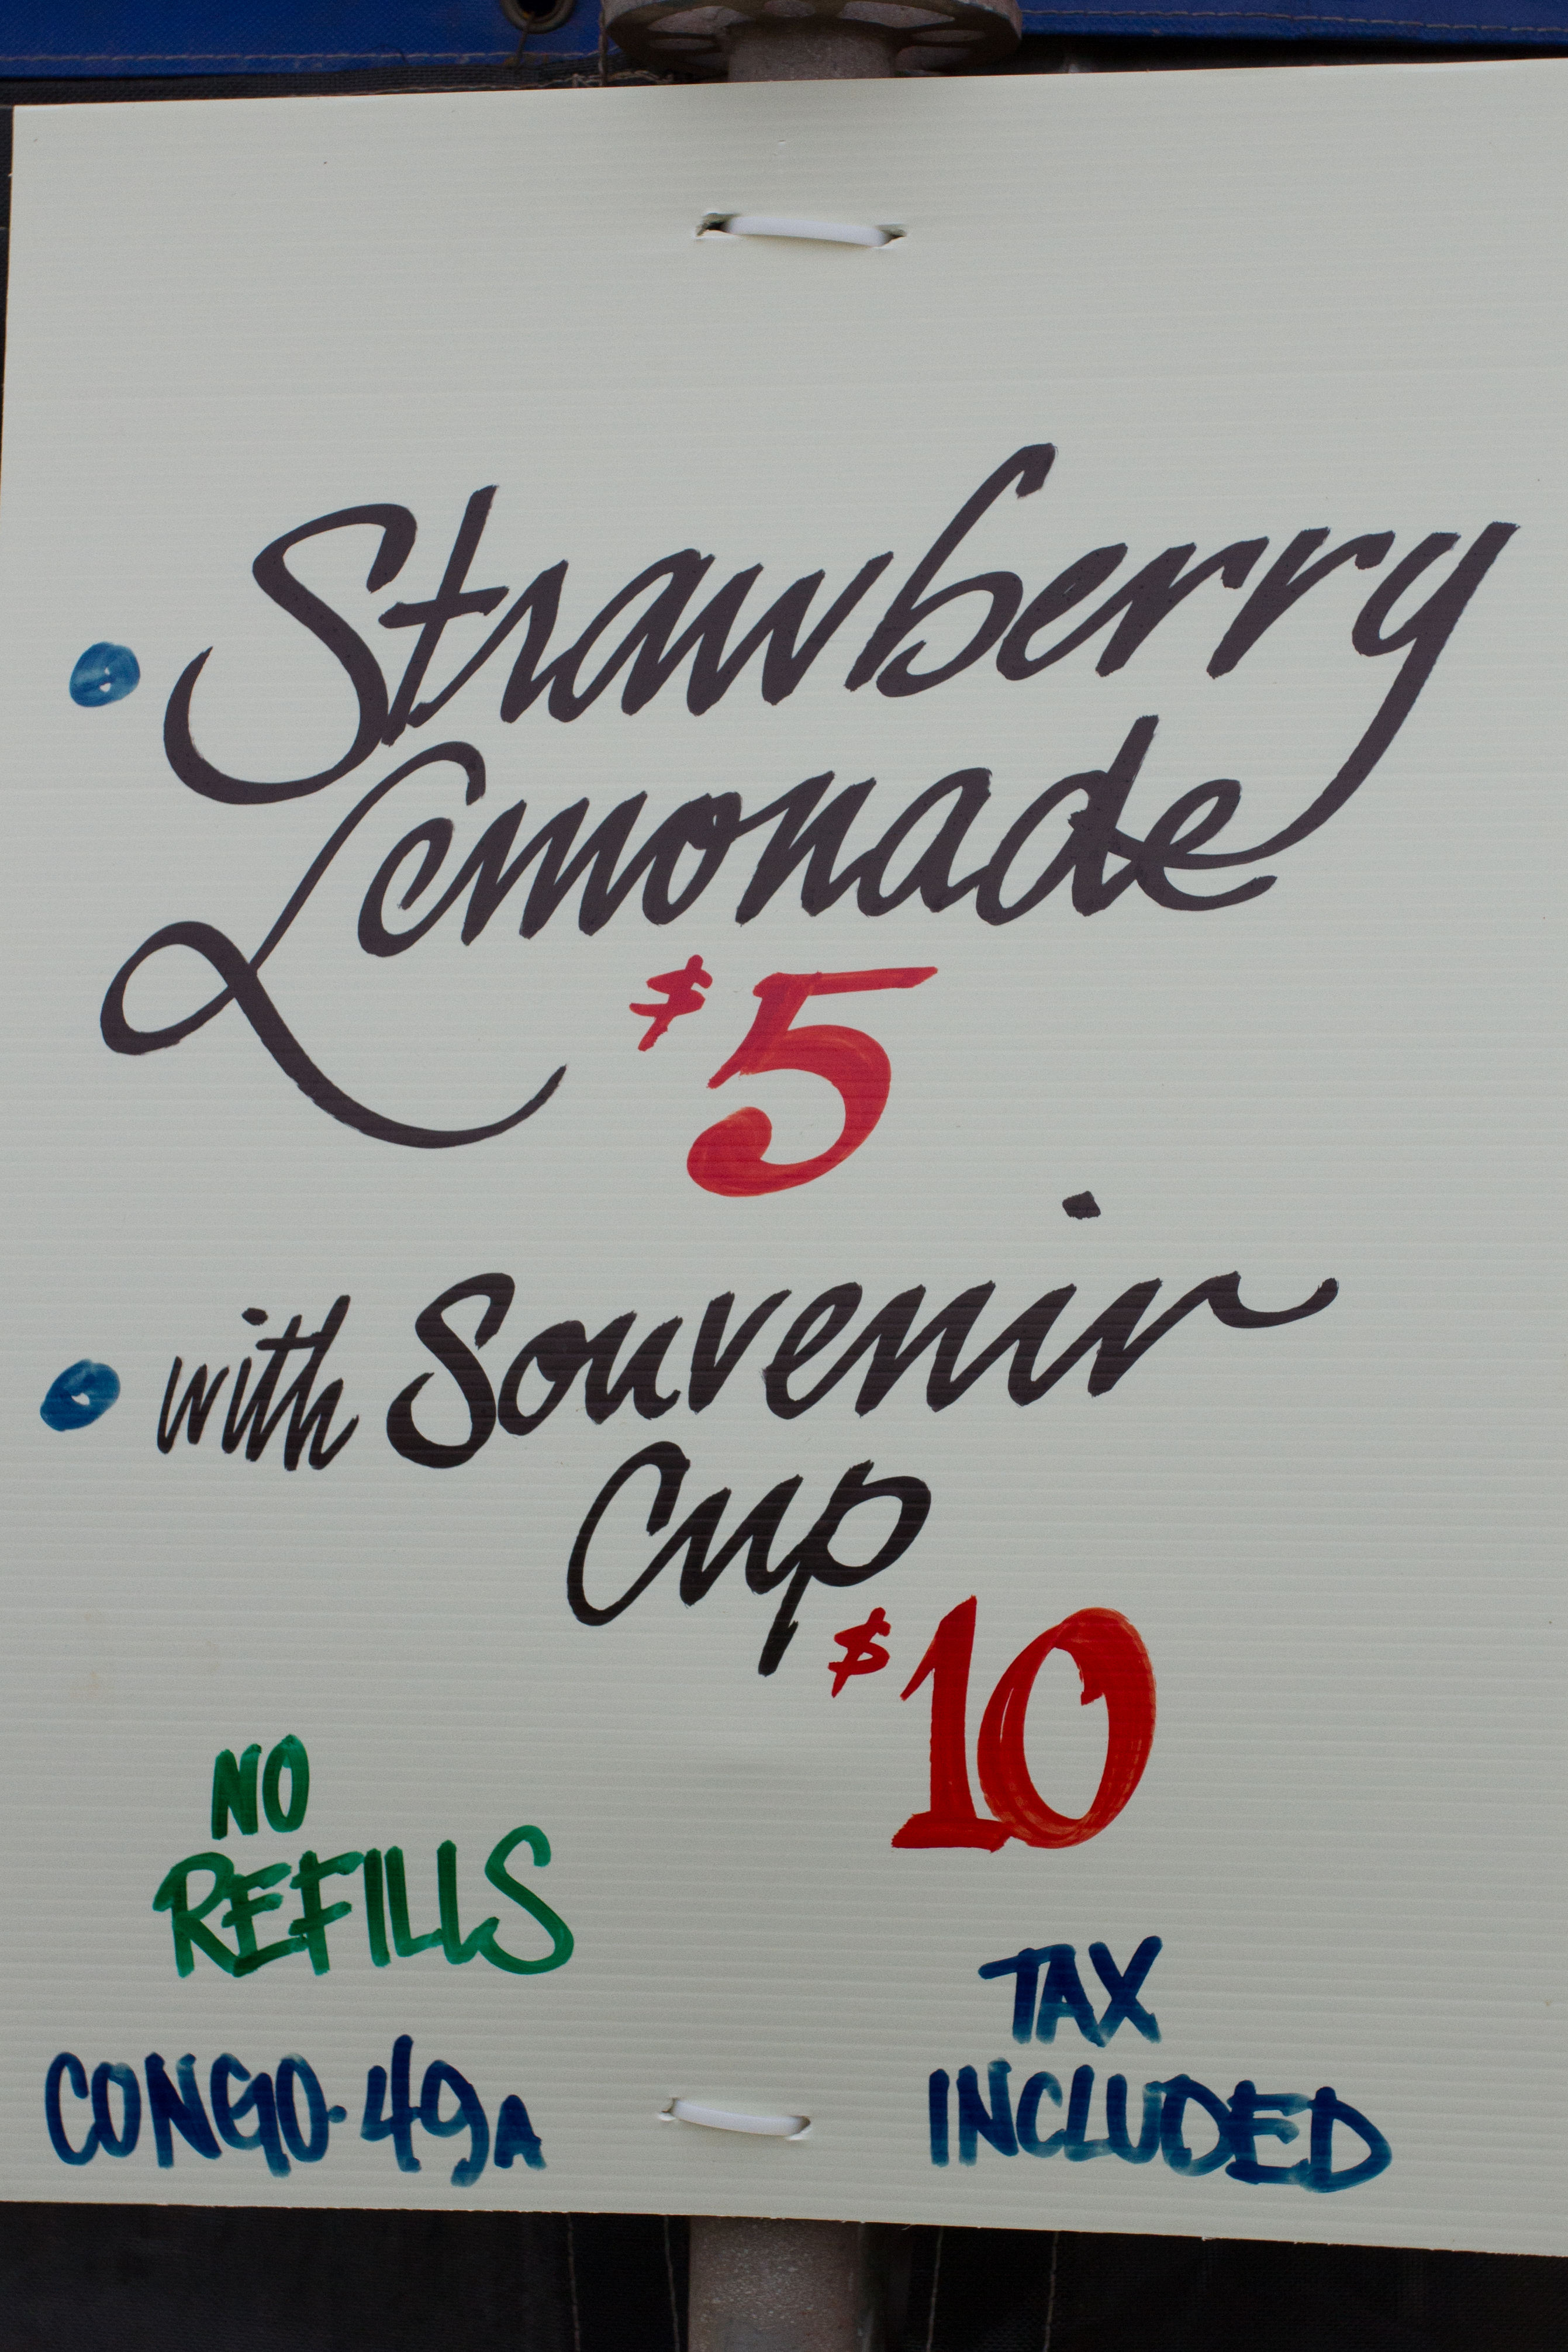 • Strawberry
Lemonade
$5
• with Souvenir
Cup
$10
NO
REFILLS
TAX
INCLUDED
CONGO·49A